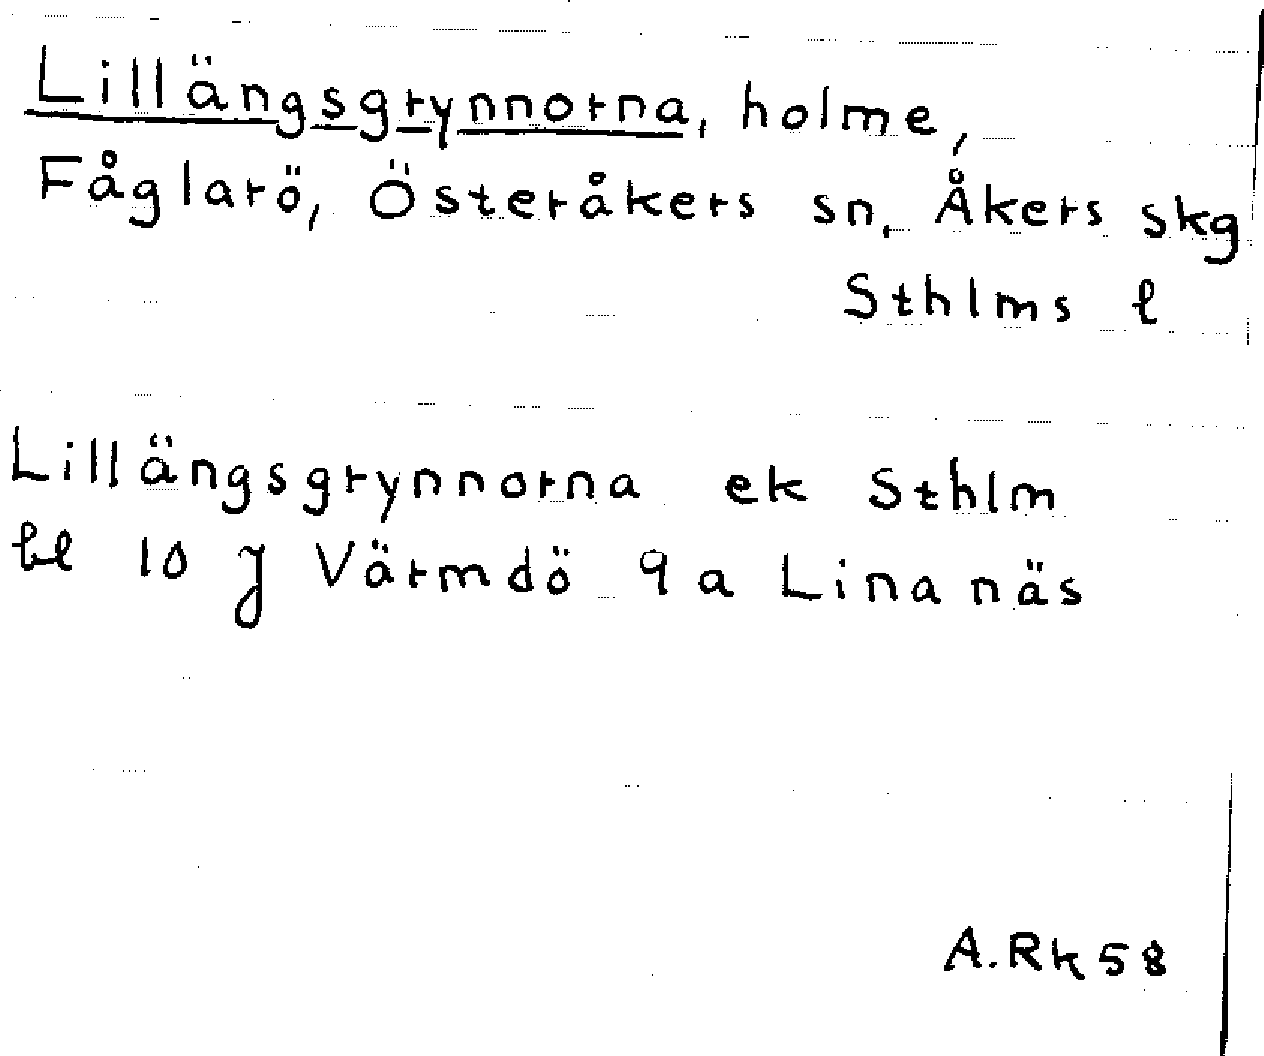 Lillängsgrynnorna, holme,
Fåglarö, Österåkers sn, Åkers skg
Sthlms l
Lillängsgrynnorna ek Sthlm
bl 10 J Värmdö 9a Linanäs
A.Rk 58